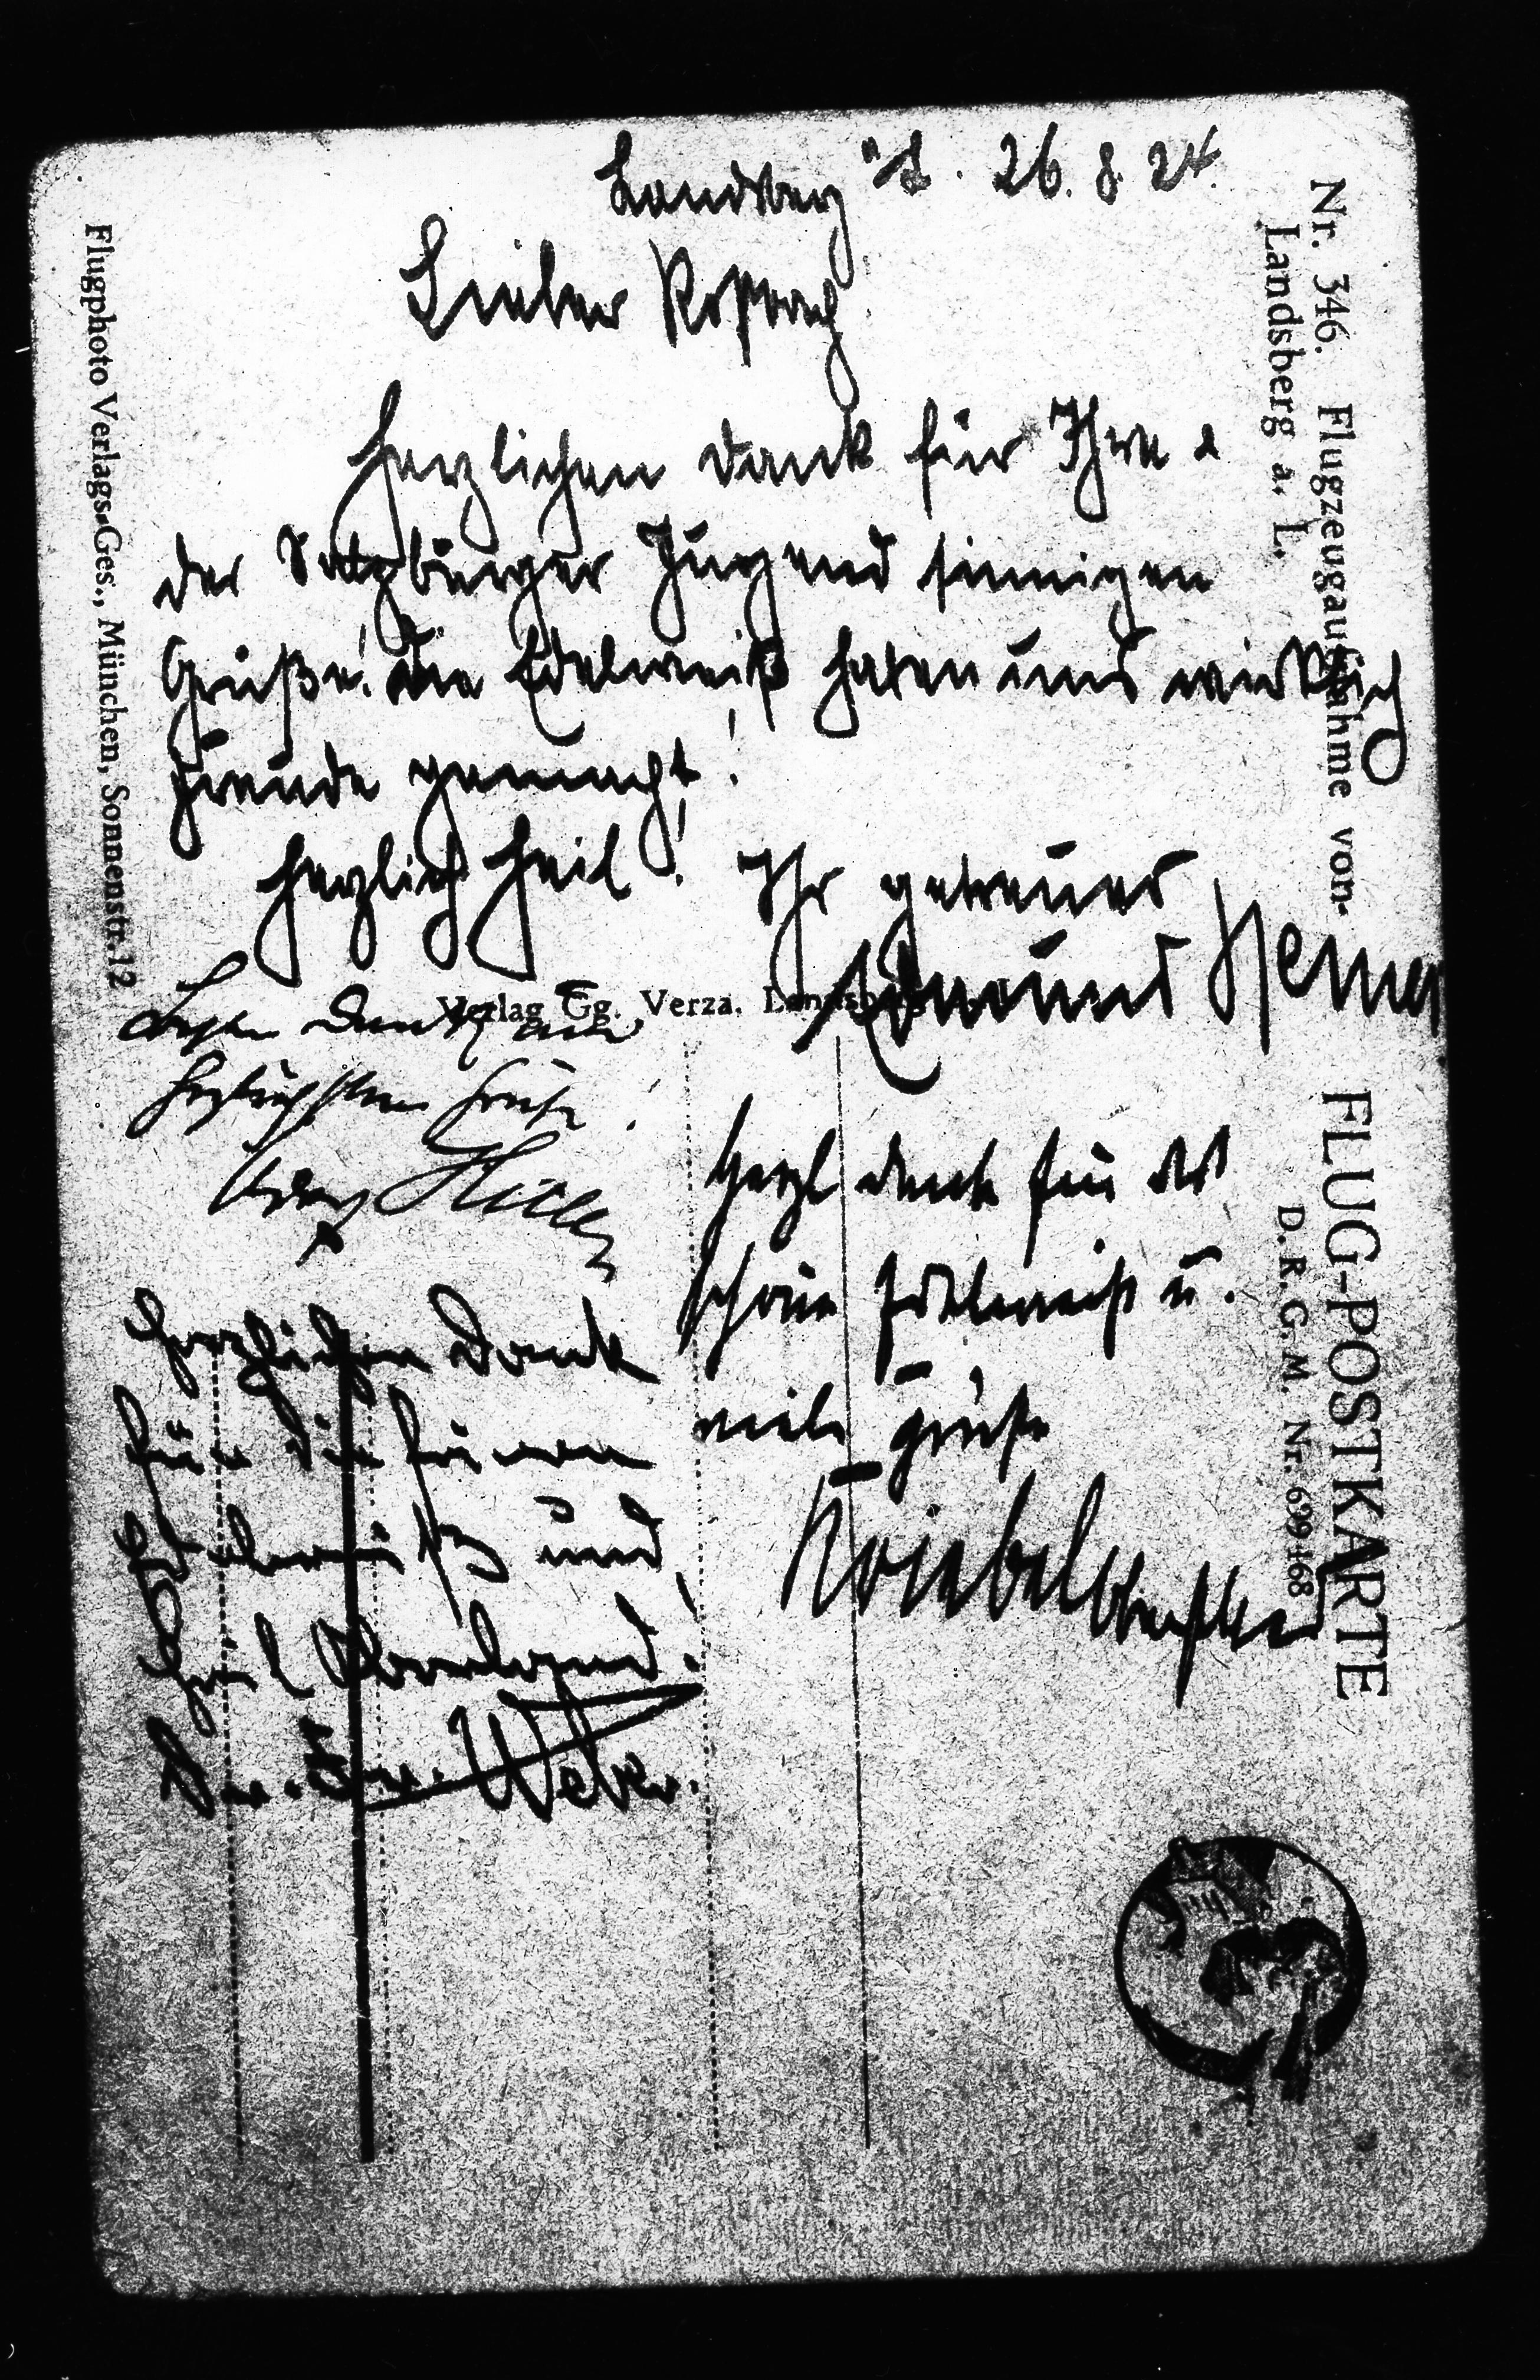 Landsberg a/L. 26.8.24.
Lieber Roßbach
Herzlichen Dank für Ihre &
der Salzburger Jugend sinnigen
Grüße! Die Edelweiß haben uns wirklich
Freude gemacht!
Herzlich Heil! Ihr getreuer
Edmund Heines
Besten Dank u. die
herzlichsten Grüße!
Hitler
Herzlichen Dank
für die schönen
Edelweiß und
Heil Oberland!
Dr. Fr. Weber.
Herzl Dank für das
schöne Edelweiß u.
viele Grüße
Kriebel Oberstltnt
Nr. 346. Flugzeugaufnahme von
Landsberg a. L.
FLUG-POSTKARTE
D. R. G. M. Nr. 699 168
Verlag Gg. Verza, Landsberg
Flugphoto Verlags-Ges., München, Sonnenstr. 12